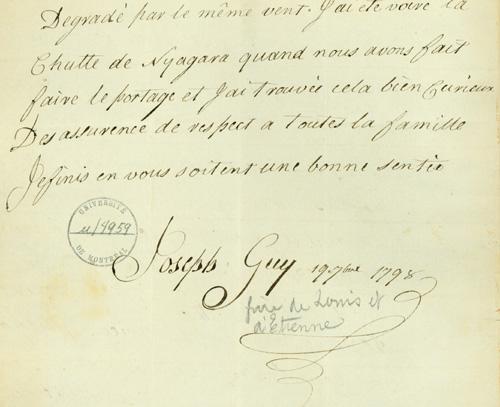 Degradé par le même vent. J'ai été voire la
Chutte de Nyagara quand nous avons fait
faire le portage et J'ai trouvée cela bien Curieux
Des assurence de respect a toutes la famille
Je finis en vous soitent une bonne sentée
UNIVERSITÉ
u/4959
DE MONTRÉAL
Joseph Guy 19 7bre 1798
frère de Louis et
d'Etienne